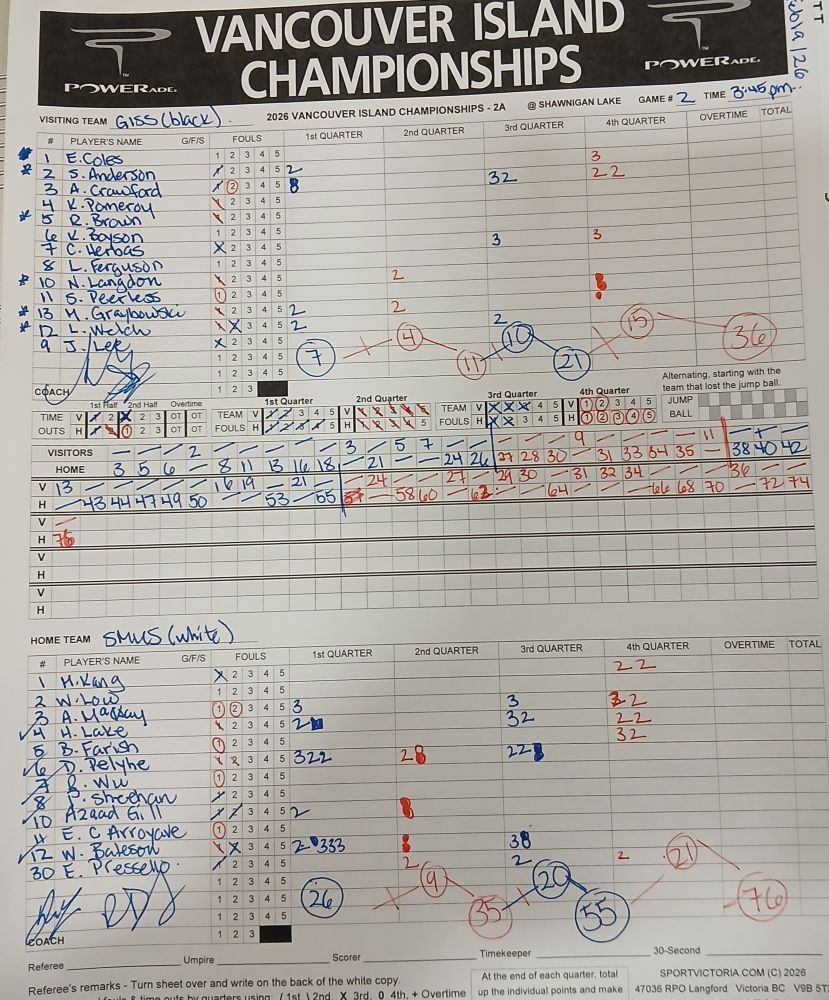 VANCOUVER ISLAND
CHAMPIONSHIPS
POWERADE.
POWERADE.
TT
VISITING TEAM GISS (black).
2026 VANCOUVER ISLAND CHAMPIONSHIPS - 2A @ SHAWNIGAN LAKE GAME # 2 TIME 3:45 pm.
# PLAYER'S NAME G/F/S FOULS 1st QUARTER 2nd QUARTER 3rd QUARTER 4th QUARTER OVERTIME TOTAL
1 E. Coles 1 2 3 4 5 3
2 S. Anderson 2 3 4 5 2 32 22
3 A. Crawford 2 3 4 5
4 K. Pomeroy 2 3 4 5
5 R. Brown 2 3 4 5
6 K. Boyson 1 2 3 4 5 3 3
7 C. Herbas X 2 3 4 5
8 L. Ferguson 1 2 3 4 5
10 N. Langdon 2 3 4 5 2
11 S. Peerless 1 2 3 4 5
13 M. Graybowski 2 3 4 5 2 2
12 L. Welch X 3 4 5 2 2
9 J. Lee X 2 3 4 5
1 2 3 4 5
1 2 3 4 5
7 4 11 10 21 15 36
COACH 1 2 3
Alternating, starting with the
team that lost the jump ball.
JUMP
BALL
1st Half 2nd Half Overtime
TIME
OUTS
OT OT
OT OT
1st Quarter 2nd Quarter 3rd Quarter 4th Quarter
TEAM
FOULS
V
H
TEAM
FOULS
V
H
VISITORS 2 3 5 7 9 11 + 38 40 42
HOME 3 5 6 8 11 13 16 18 21 24 26 27 28 30 31 33 34 35
V 13 16 19 21 24 27 29 30 31 32 34 36
H 43 44 47 49 50 53 55 57 58 60 62 64 66 68 70 72 74
V
H 76
V
H
V
H
HOME TEAM SMUS (white)
# PLAYER'S NAME G/F/S FOULS 1st QUARTER 2nd QUARTER 3rd QUARTER 4th QUARTER OVERTIME TOTAL
1 M. Kang X 2 3 4 5 22
2 W. Low 1 2 3 4 5
3 A. 1 2 3 4 5 3 3 2
4 H. Lake 2 3 4 5 2 32 22
5 B. Farish 1 2 3 4 5 32
6 D. Pelyhe 3 4 5 322 2 22
7 R. Wu 1 2 3 4 5
8 P. Sheehan 2 3 4 5
10 Azaad Gill 3 4 5 2
11 E. C Arroyave 1 2 3 4 5
12 W. Bateson X 3 4 5 2 333 3
30 E. Pressello. 2 3 4 5 2 2 2
1 2 3 4 5
1 2 3 4 5
1 2 3 4 5
26 9 35 20 55 21 76
COACH 1 2 3
Referee Umpire Scorer Timekeeper 30-Second
Referee's remarks - Turn sheet over and write on the back of the white copy.
fouls & time outs by quarters using: / 1st, \ 2nd, X 3rd, 0 4th, + Overtime
At the end of each quarter, total
up the individual points and make
SPORTVICTORIA.COM (C) 2026
47036 RPO Langford Victoria BC V9B 5T